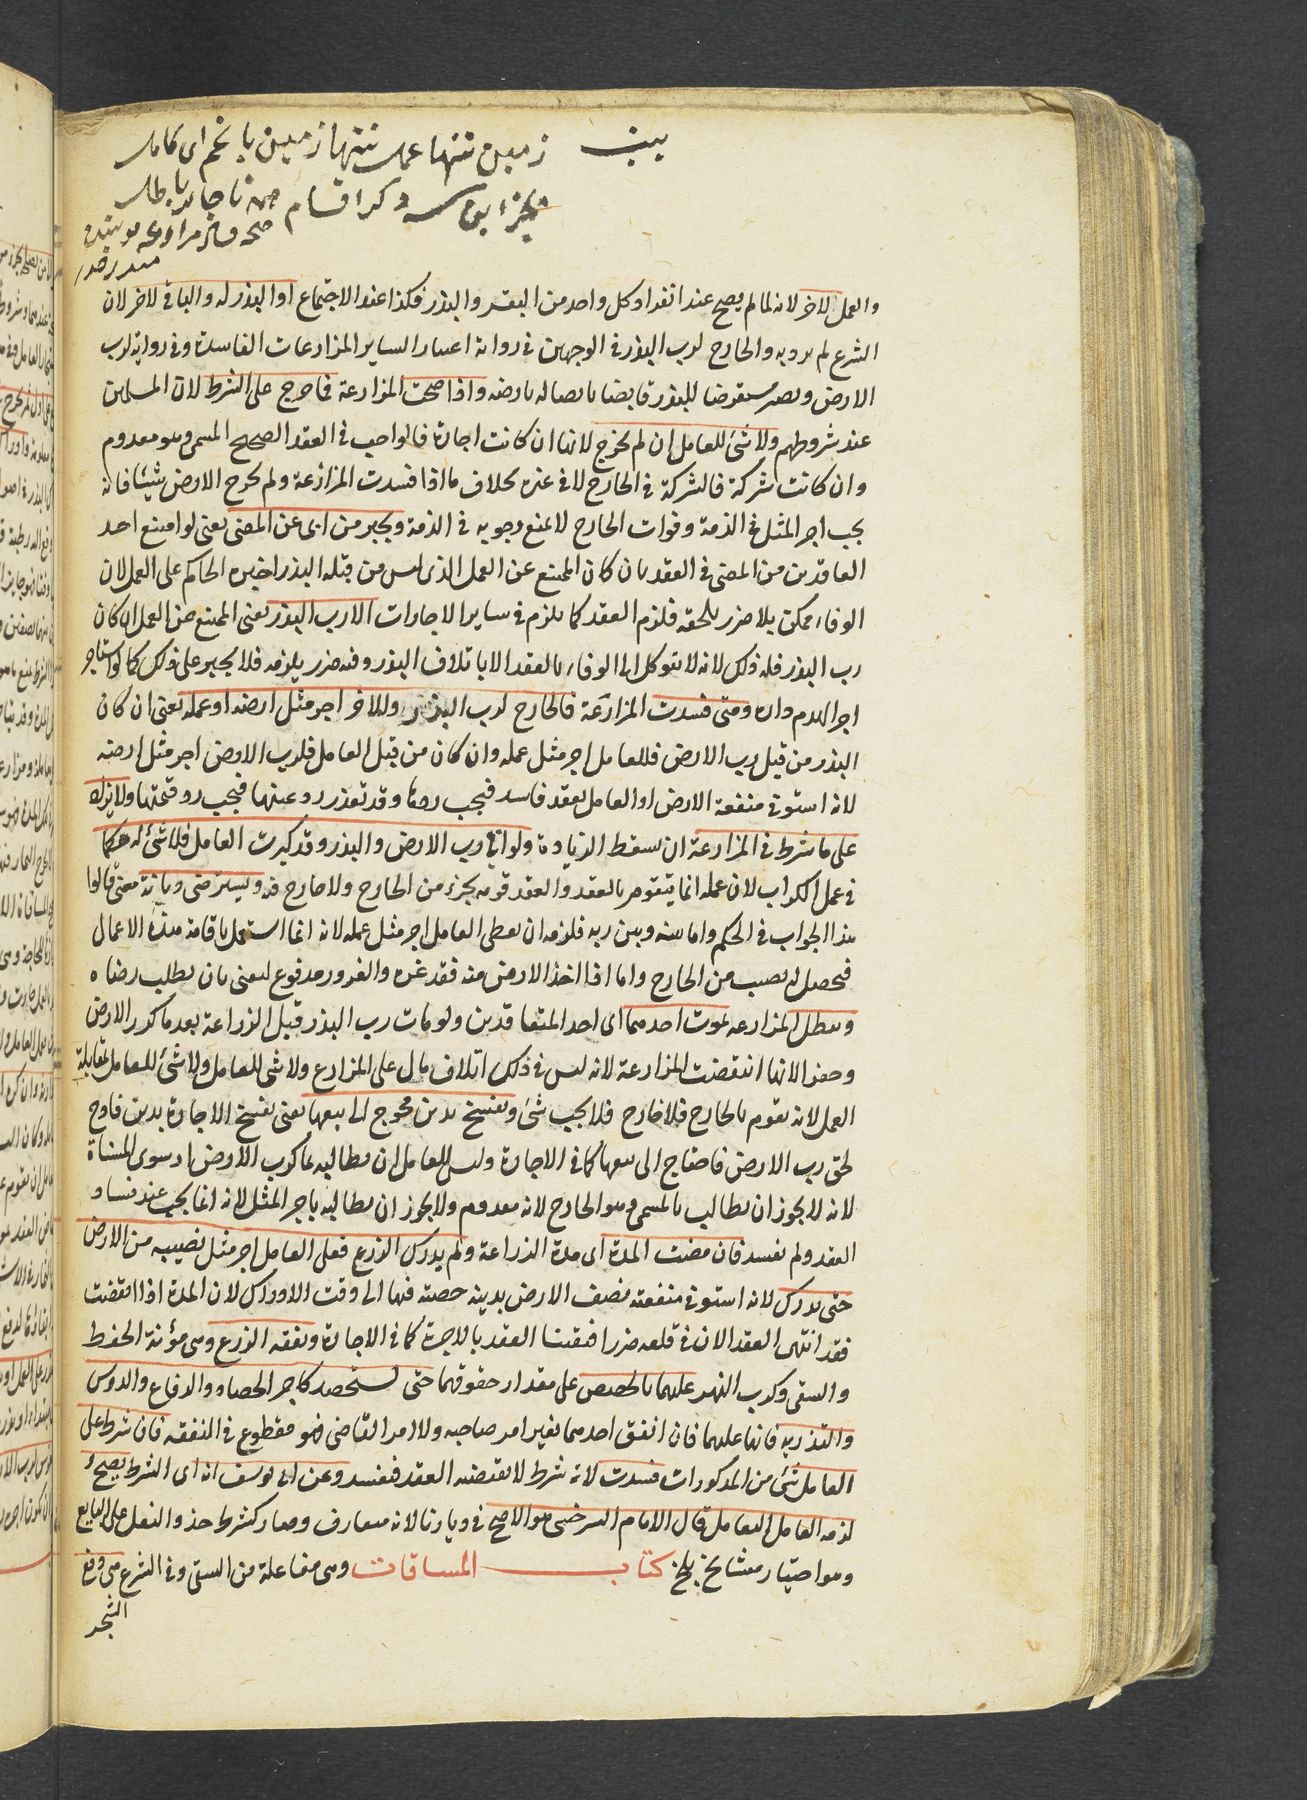 بيت زمين تنها عمل تنها زمين با تخم اى كامل
بجز اين سه دكر اقسام همه ناجايز باطل
والعمل لاخر لانه لما لم يصح عند انفراد كل واحد من البقر والبذر فكذا عند الاجتماع او البذر له والباقى لاخر لان
الشرع لم يرد به والخارج لرب البذر فى الوجهين فى رواية اعتبارا بساير المزارعات الفاسدة وفى رواية لرب
الارض ويصير مستقرضا للبذر قابضا باتصاله بارضه واذا صحت المزارعة فالخارج على الشرط لان المسلمين
عند شروطهم ولا شئ للعامل ان لم يخرج لانها ان كانت اجارة فالواجب فى العقد الصحيح المسمى وهو معدوم
وان كانت شركة فالشركة فى الخارج لا فى غيره بخلاف ما اذا فسدت المزارعة ولم يخرج الارض شيئا فانه
يجب اجر المثل فى الذمة وفوات الخارج لا يمنع وجوبه فى الذمة ويجبر من ابى عن المضى يعنى لو امتنع احد
العاقدين من المضى فى العقد بان كان الممتنع عن العمل الذى ليس من قبله البذر اجبره الحاكم على العمل لان
الوفاء ممكن بلا ضرر يلحقه فلزم العقد كما يلزم فى ساير الاجارات الا رب البذر يعنى الممتنع من العمل ان كان
رب البذر فله ذلك لانه لا يتوكل الى الوفاء بالعقد الا باتلاف البذر وفيه ضرر يلزمه فلا يجبر على ذلك كما لو استاجر
اجر الهدم داره ومتى فسدت المزارعة فالخارج لرب البذر وللاخر اجر مثل ارضه او عمله يعنى ان كان
البذر من قبل رب الارض فللعامل اجر مثل عمله وان كان من قبل العامل فلرب الارض اجر مثل ارضه
لانه استوفى منفعة الارض او العامل بعقد فاسد فيجب ردها وقد تعذر رد عينها فيجب رد قيمتها ولا يزاد
على ما شرط فى المزارعة ان سقط الزيادة ولو ابى رب الارض والبذر وقد كربت العامل فلا شئ له حكما
فى عمل الكراب لان عمله انما يتقوم بالعقد والعقد قومه بجزء من الخارج ولا خارج فيه ويسترضى ديانة معنى قالوا
هذا الجواب فى الحكم واما بينه وبين ربه فلزمه ان يعطى العامل اجر مثل عمله لانه انما استعمل باقامة هذه الاعمال
فيحصل له نصيب من الخارج واما اذا اخذ الارض منه فقد غره والغرور مدفوع ليعنى بان يطلب رضاه
ويبطل المزارعة بموت احدهما اى احد المتعاقدين ولو مات رب البذر قبل الزراعة بعد ما كرر الارض
وحفر الانهار انتقضت المزارعة لانه ليس فى ذلك اتلاف مال على المزارع ولا شئ للعامل ولا شئ للعامل بمقابلة
العمل لانه يقوم بالخارج فلا خارج فلا يجب شئ ويفسخ بدين محوج الى بيعها يعنى يفسخ الاجارة بدين فادح
لحق رب الارض فاحتاج الى بيعها كما فى الاجارة وليس للعامل ان يطالبه بما كرب الارض او سوى المنشاة
لانه لا يجوز ان يطالب بالمسمى وهو الخارج لانه معدوم ولا يجوز ان يطالبه باجر المثل لانه انما يجب عند فساد
العقد ولم يفسد فان مضت المدة اى مدة الزراعة ولم يدرك الزرع فعلى العامل اجر مثل نصيبه من الارض
حتى يدرك لانه استوفى منفعته نصف الارض بدينه حصته فيها الى وقت الادراك لان المدة اذا انقضت
فقد انتهى العقد الا ان فى قلعه ضررا فبقينا العقد بالاجرة كما فى الاجارة ونفقة الزرع وهى مؤنة الحفظ
والسقى وكرب النهر عليهما بالحصص على مقدار حقوقهما حتى يستحصد كاجر الحصاد والرفاع والدوس
والتذرية فانها عليهما فان انفق احدهما بغير امر صاحبه ولا امر القاضى فهو متطوع فى النفقة فان شرط على
العامل شئ من المذكورات فسدت لانه شرط لا يقتضيه العقد فيفسد وعن ابى يوسف انه اى الشرط يصح
لزمه العامل للتعامل قال الامام السرخسى هو الاصح فى ديارنا لانه متعارف وصار كشرط حذو النعل على البايع
وهو اختيار مشايخ بلخ كتاب المساقات وهى مفاعلة من السقى وفى الشرع هى دفع
الشجر